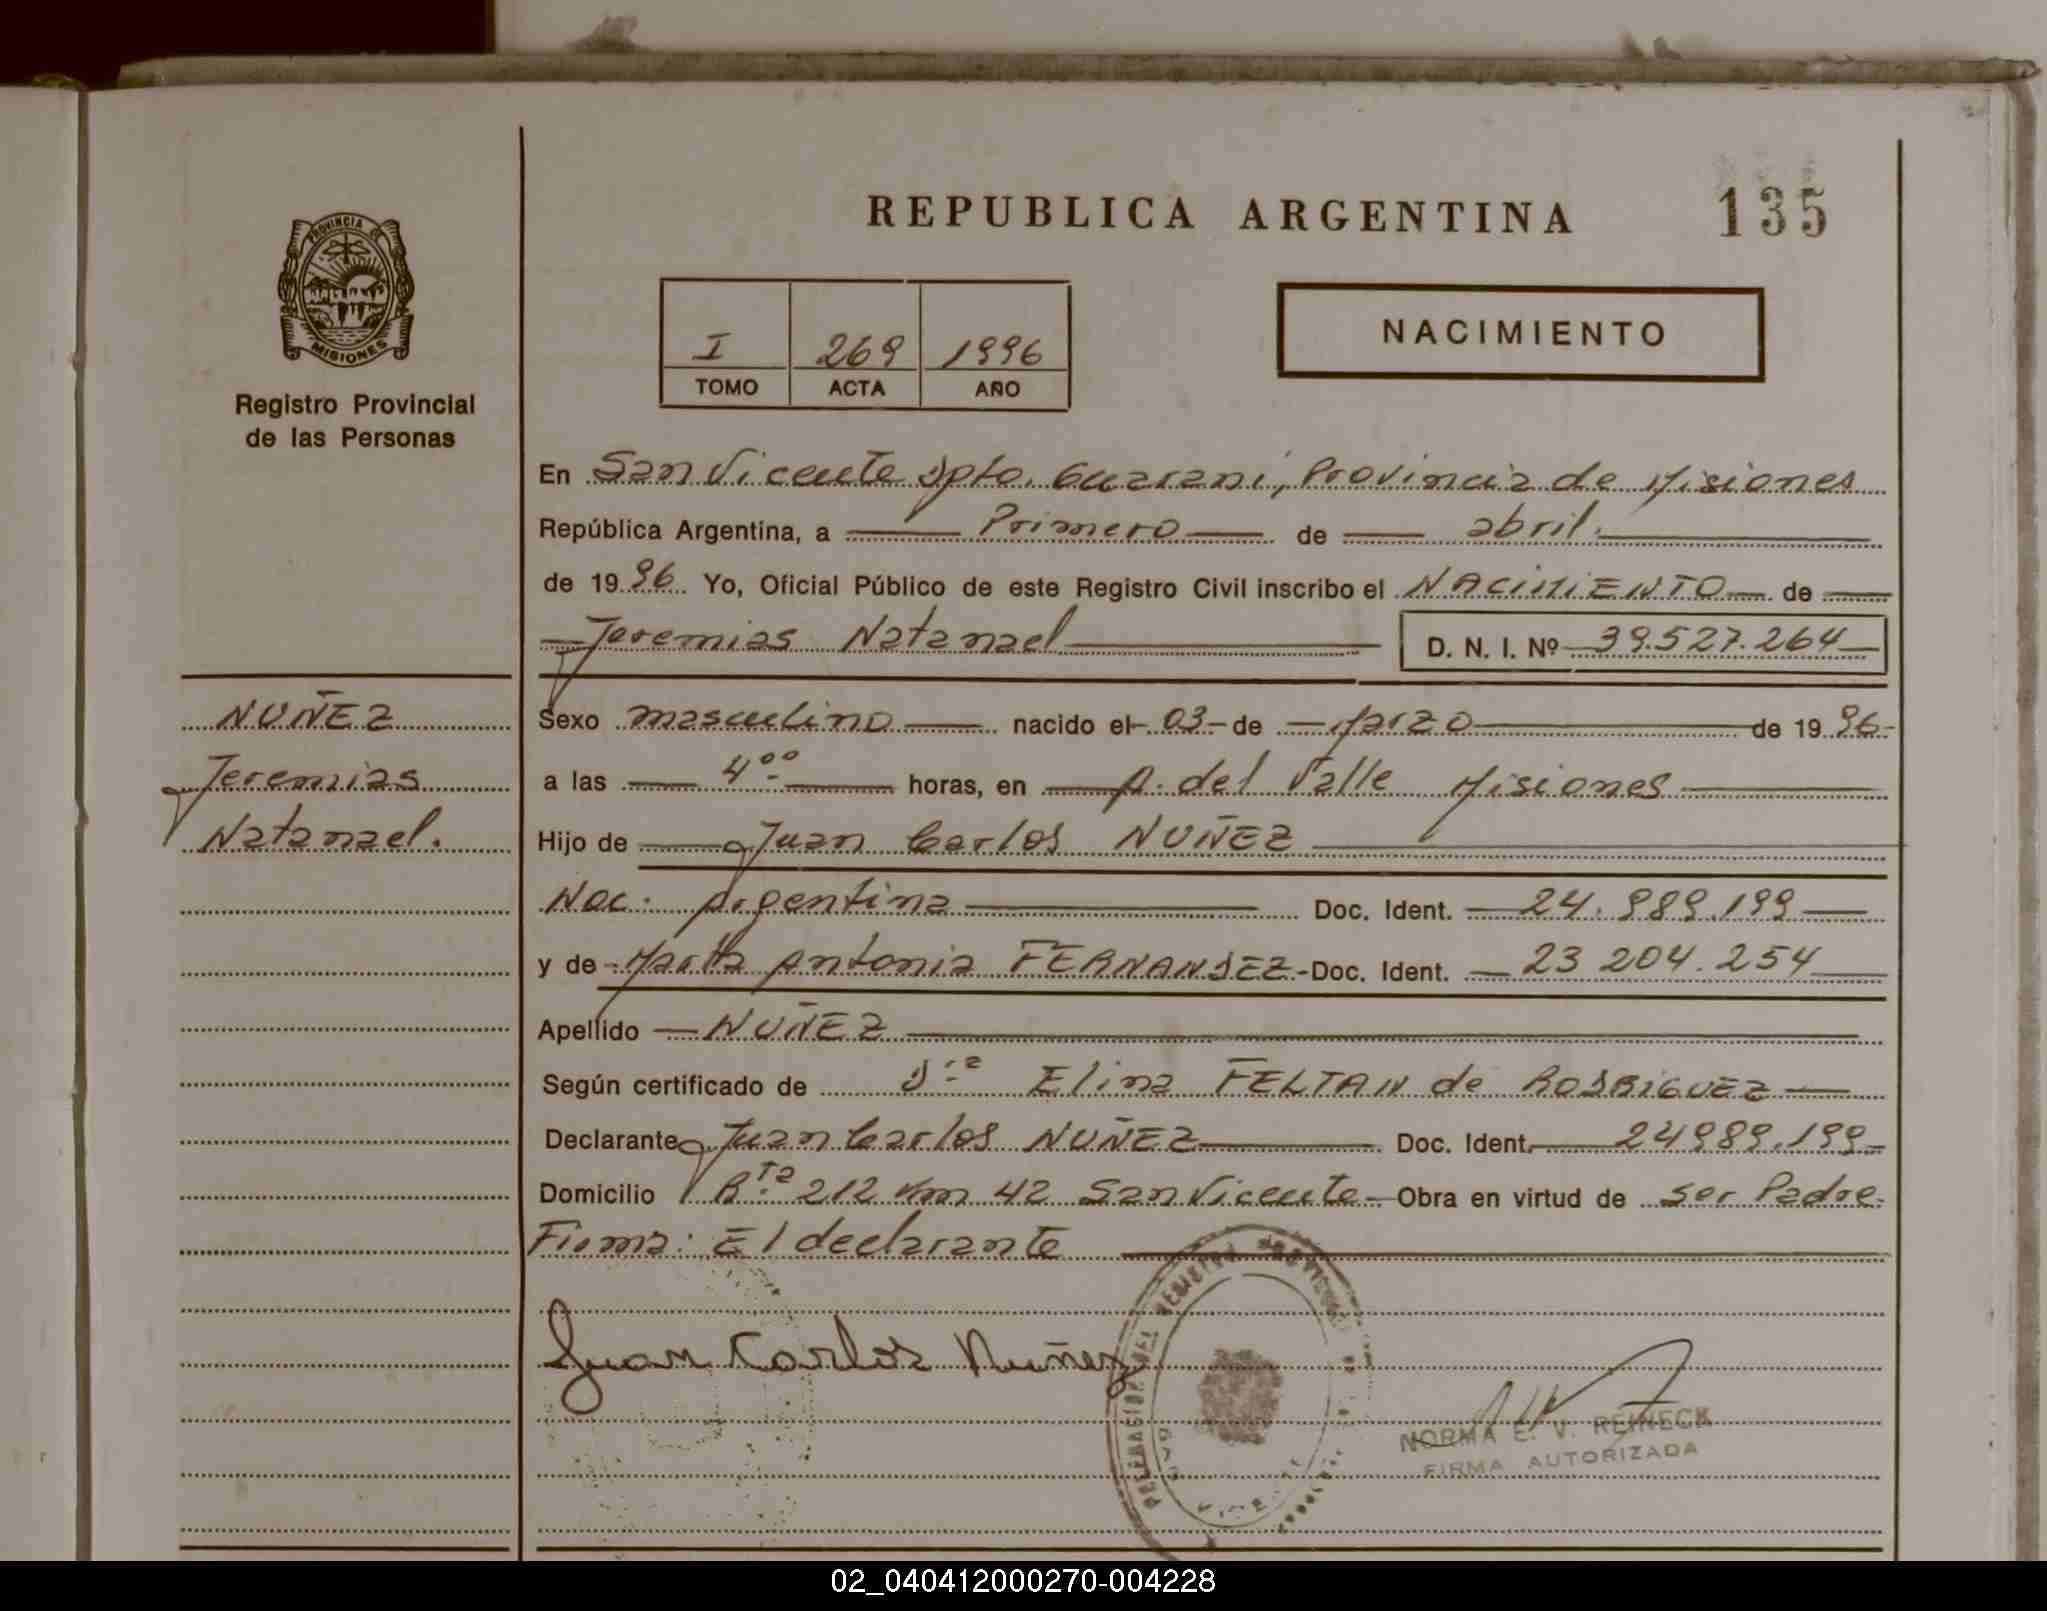 REPUBLICA ARGENTINA
135
PROVINCIA DE
MISIONES
Registro Provincial
de las Personas
I 269 1996
TOMO ACTA AÑO
NACIMIENTO
En San Vicente Dpto. Guaraní, Provincia de Misiones
República Argentina, a Primero de abril.
de 1996 Yo, Oficial Público de este Registro Civil inscribo el NACIMIENTO de
Jeremias Natanael D. N. I. Nº 39.527.264
NUÑEZ
Jeremias
Natanael.
Sexo masculino nacido el 03 de Marzo de 1996
a las 4⁰⁰ horas, en A. del Valle Misiones
Hijo de Juan Carlos NUÑEZ
Nac. Argentina Doc. Ident. 24.989.199
y de Marta Antonia FERNANDEZ Doc. Ident. 23 204.254
Apellido NUÑEZ
Según certificado de D.ra Elina FELTAN de RODRIGUEZ
Declarante Juan Carlos NUÑEZ Doc. Ident. 24989.199
Domicilio R.Ta 212 Km 42 San Vicente Obra en virtud de ser Padre.
Firma: El declarante
Juan Carlos Nuñez
NORMA E. V. REINECK
FIRMA AUTORIZADA
02_040412000270-004228